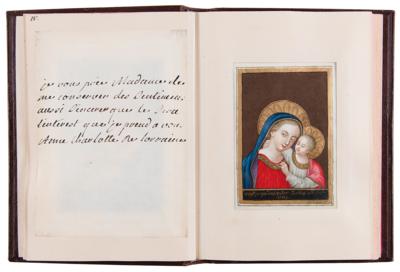 je vous prie Madame de
me conserver des Sentimens
aussi Sinceres que le Sera
l'interest que je prend a vous
Anne Charlotte De lorraine